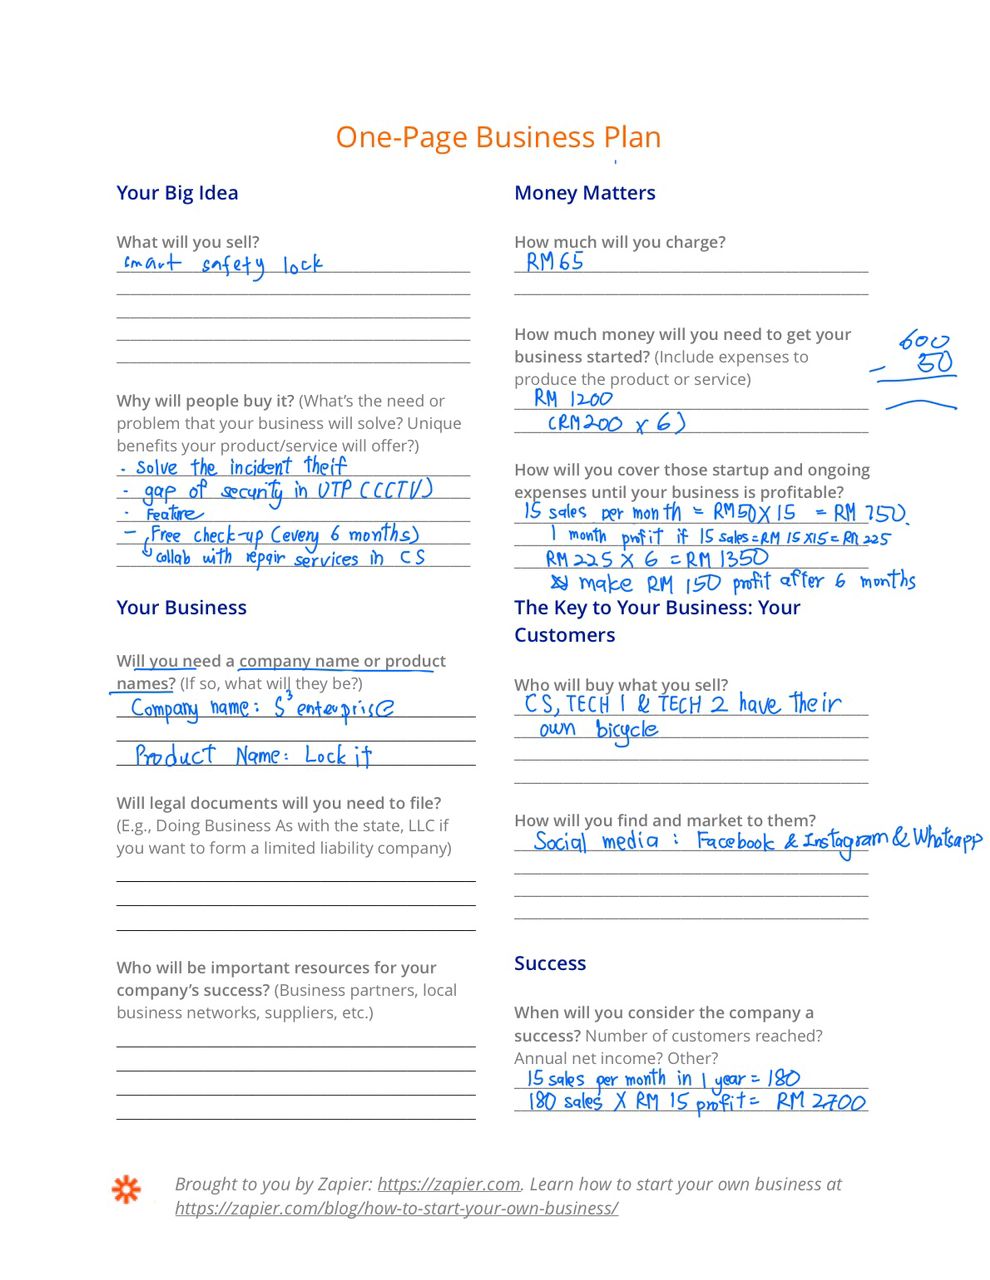 One-Page Business Plan
Your Big Idea
What will you sell?
smart safety lock
Why will people buy it? (What's the need or
problem that your business will solve? Unique
benefits your product/service will offer?)
- solve the incident theif
- gap of security in UTP (CCTV)
- Feature
- Free check-up (every 6 months)
↳ collab with repair services in CS
Your Business
Will you need a company name or product
names? (If so, what will they be?)
Company name: S³ enterprise
Product Name: Lock it
Will legal documents will you need to file?
(E.g., Doing Business As with the state, LLC if
you want to form a limited liability company)
Who will be important resources for your
company's success? (Business partners, local
business networks, suppliers, etc.)
Money Matters
How much will you charge?
RM65
How much money will you need to get your
business started? (Include expenses to
produce the product or service)
RM 1200
(RM200 x 6)
600
- 50
How will you cover those startup and ongoing
expenses until your business is profitable?
15 sales per month = RM50 X 15 = RM 750.
1 month profit if 15 sales = RM 15 X15 = RM 225
RM 225 X 6 = RM 1350
make RM 150 profit after 6 months
The Key to Your Business: Your
Customers
Who will buy what you sell?
CS, TECH 1 & TECH 2 have their
own bicycle
How will you find and market to them?
Social media : Facebook & Instagram & Whatsapp
Success
When will you consider the company a
success? Number of customers reached?
Annual net income? Other?
15 sales per month in 1 year = 180
180 sales X RM 15 profit = RM 2700
Brought to you by Zapier: https://zapier.com. Learn how to start your own business at
https://zapier.com/blog/how-to-start-your-own-business/